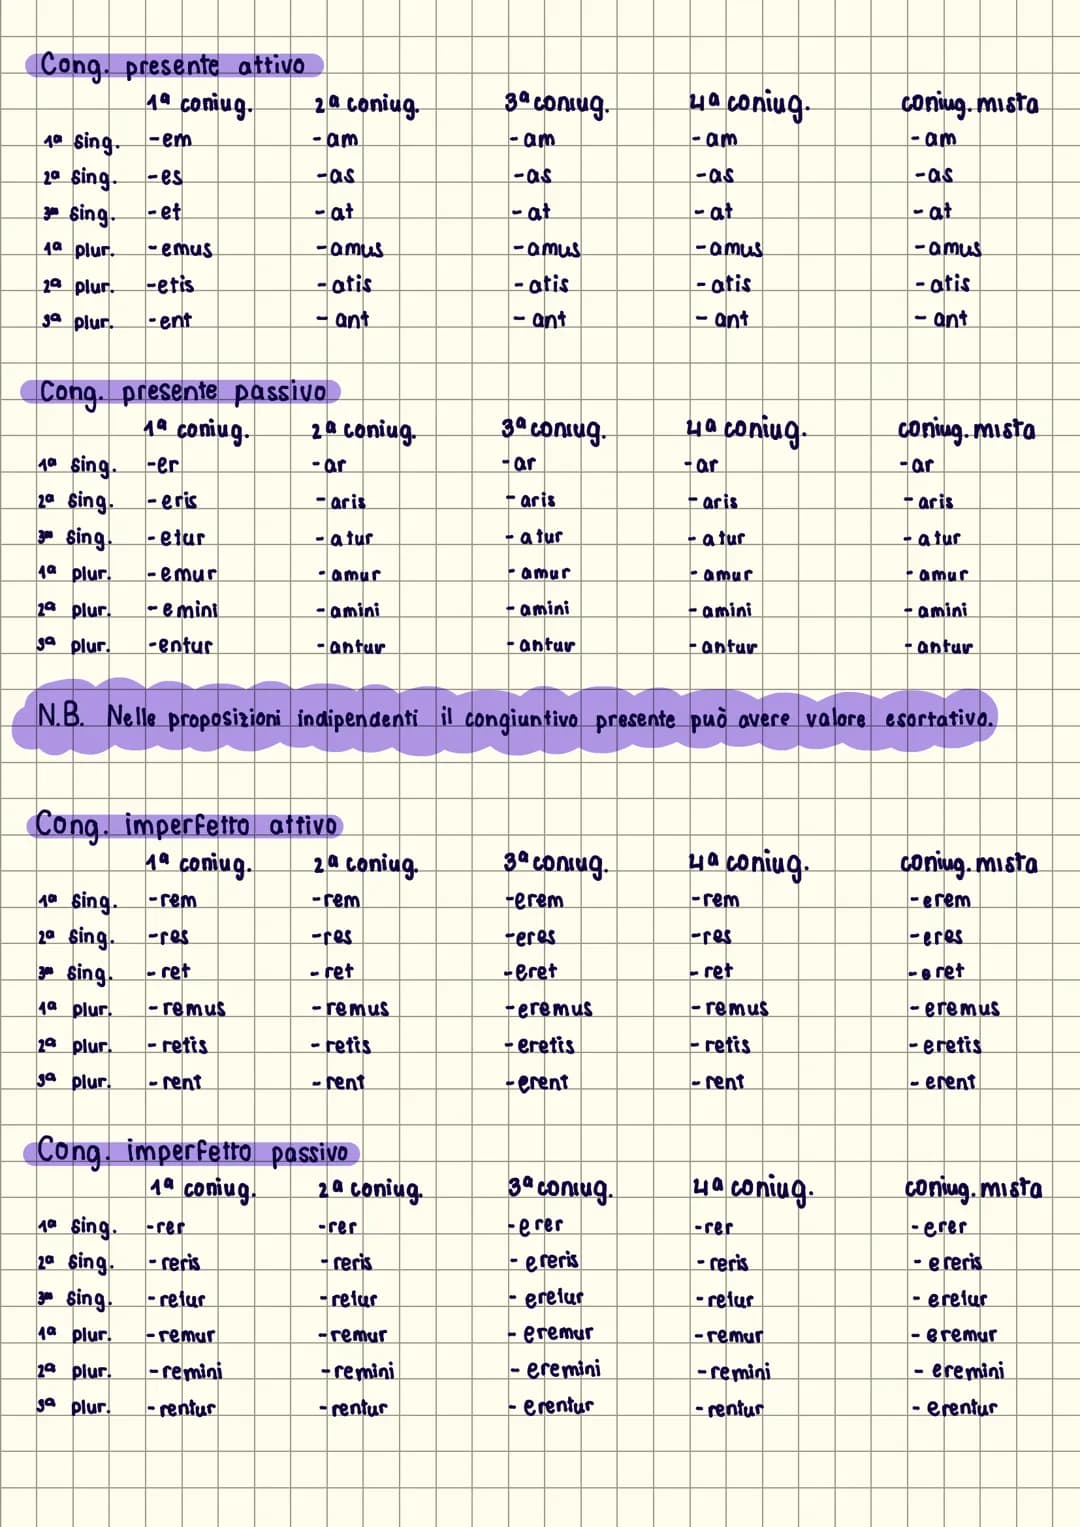 Cong. presente attivo
1ª coniug. 2ª coniug. 3ª coniug. 4ª coniug. coniug. mista
1ª sing. -em -am -am -am -am
2ª sing. -es -as -as -as -as
3ª sing. -et -at -at -at -at
1ª plur. -emus -amus -amus -amus -amus
2ª plur. -etis -atis -atis -atis -atis
3ª plur. -ent -ant -ant -ant -ant
Cong. presente passivo
1ª coniug. 2ª coniug. 3ª coniug. 4ª coniug. coniug. mista
1ª sing. -er -ar -ar -ar -ar
2ª sing. -eris -aris -aris -aris -aris
3ª sing. -etur -atur -atur -atur -atur
1ª plur. -emur -amur -amur -amur -amur
2ª plur. -emini -amini -amini -amini -amini
3ª plur. -entur -antur -antur -antur -antur
N.B. Nelle proposizioni indipendenti il congiuntivo presente può avere valore esortativo.
Cong. imperfetto attivo
1ª coniug. 2ª coniug. 3ª coniug. 4ª coniug. coniug. mista
1ª sing. -rem -rem -erem -rem -erem
2ª sing. -res -res -eres -res -eres
3ª sing. -ret -ret -eret -ret -eret
1ª plur. -remus -remus -eremus -remus -eremus
2ª plur. -retis -retis -eretis -retis -eretis
3ª plur. -rent -rent -erent -rent -erent
Cong. imperfetto passivo
1ª coniug. 2ª coniug. 3ª coniug. 4ª coniug. coniug. mista
1ª sing. -rer -rer -erer -rer -erer
2ª sing. -reris -reris -ereris -reris -ereris
3ª sing. -retur -retur -eretur -retur -eretur
1ª plur. -remur -remur -eremur -remur -eremur
2ª plur. -remini -remini -eremini -remini -eremini
3ª plur. -rentur -rentur -erentur -rentur -erentur